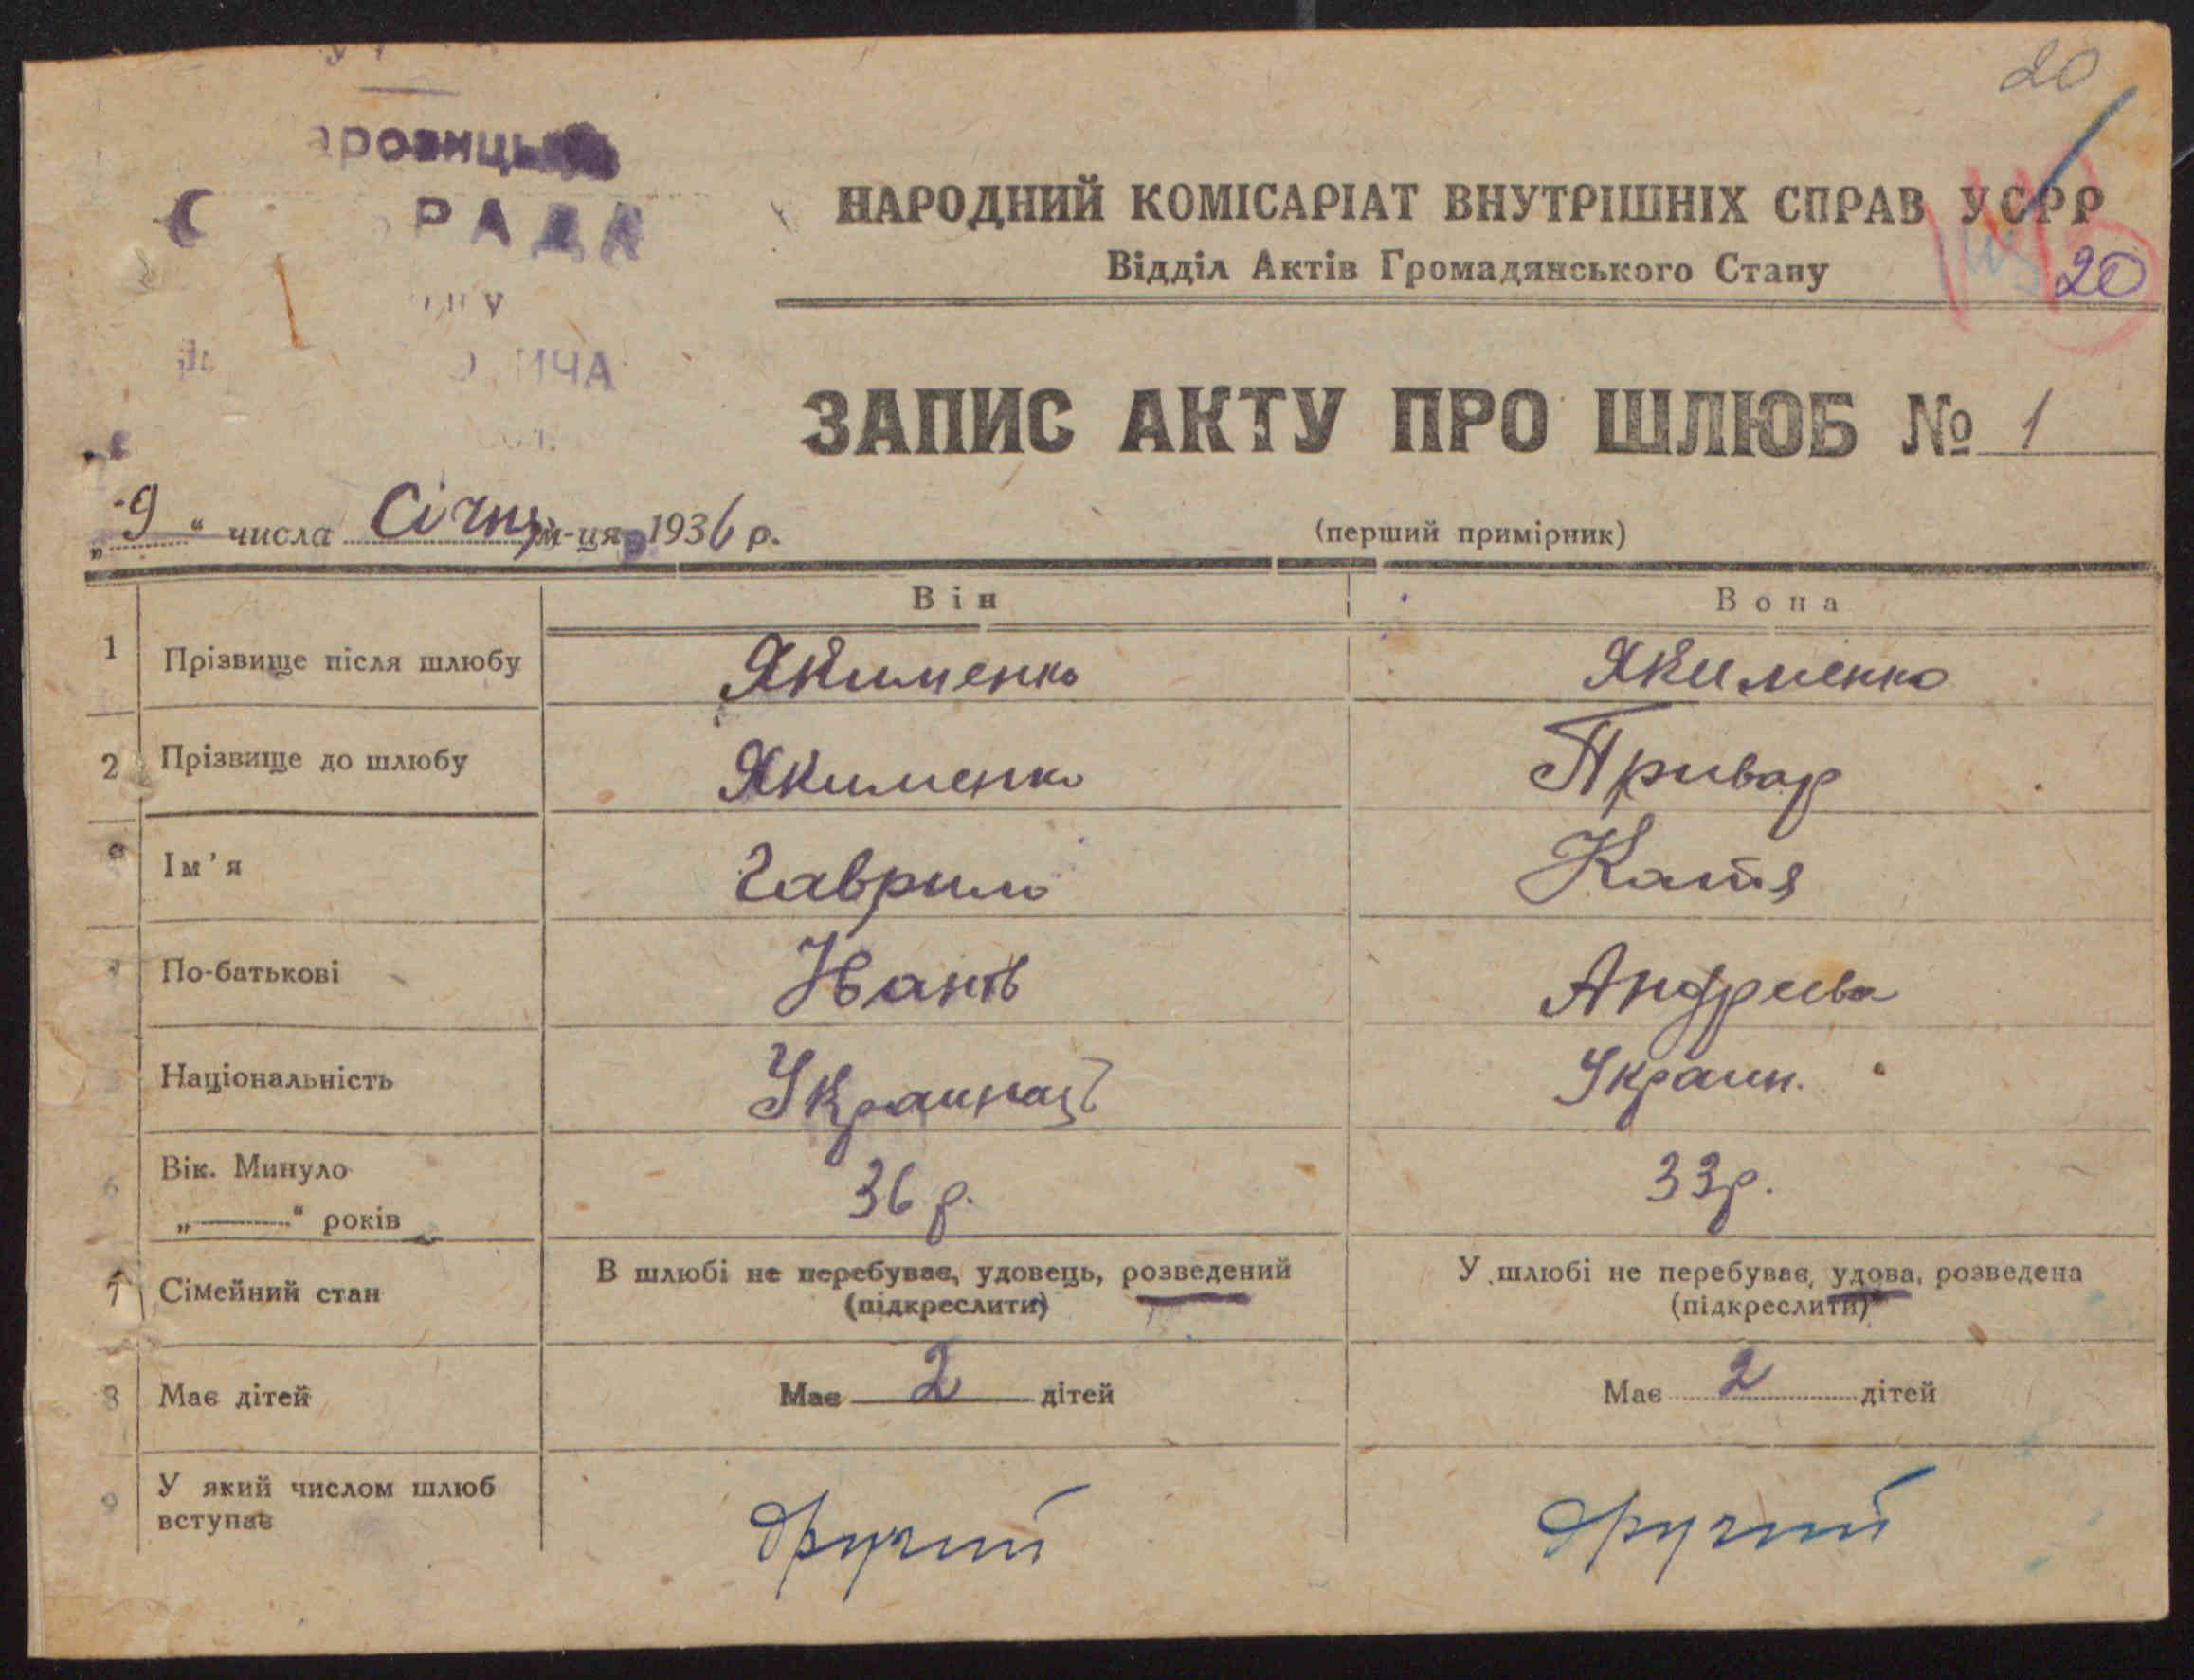 20
РАДА
НАРОДНИЙ КОМІСАРІАТ ВНУТРІШНІХ СПРАВ УСРР
Відділ Актів Громадянського Стану
20
ЗАПИС АКТУ ПРО ШЛЮБ № 1
„9“ числа Січня м-ця 1936 р.
(перший примірник)
Він Вона
1 Прізвище після шлюбу Якименко Якименко
2 Прізвище до шлюбу Якименко Привар
Ім'я Гаврило Катя
По-батькові Іванів Андрієва
Національність Українец Украин.
6 Вік. Минуло 36 р. 33 р.
„ “ років
7 Сімейний стан В шлюбі не перебуває, удовець, розведений У шлюбі не перебуває, удова, розведена
(підкреслити) (підкреслити)
8 Має дітей Має 2 дітей Має 2 дітей
9 У який числом шлюб вступає другий другий